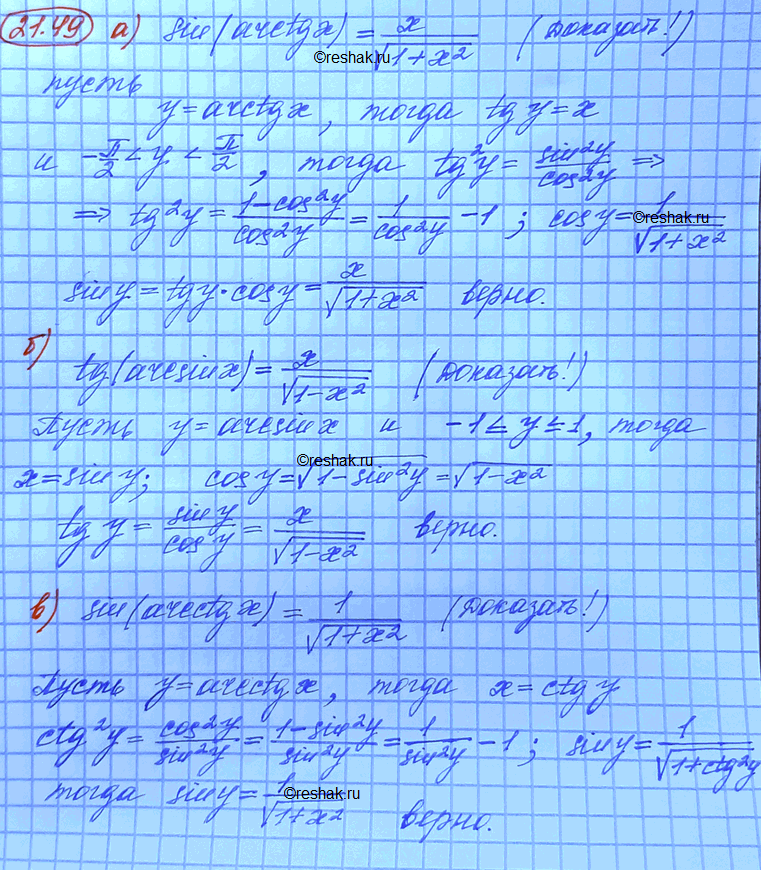 21.49 а) sin(arctgx) = x/√(1+x²) (Доказать!)
©reshak.ru
пусть
y = arctgx, тогда tg y = x
и -π/2 < y < π/2, тогда tg²y = sin²y/cos²y ⇒
⇒ tg²y = (1-cos²y)/cos²y = 1/cos²y - 1; cosy = 1/√(1+x²)
©reshak.ru
siny = tgy·cosy = x/√(1+x²) верно.
б)
tg(arcsinx) = x/√(1-x²) (Доказать!)
Пусть y = arcsinx и -1 ≤ y ≤ 1, тогда
©reshak.ru
x = sin y; cosy = √(1-sin²y) = √(1-x²)
tg y = siny/cosy = x/√(1-x²) верно.
в) sin(arcctgx) = 1/√(1+x²) (Доказать!)
Пусть y = arcctgx, тогда x = ctg y
ctg²y = cos²y/sin²y = (1-sin²y)/sin²y = 1/sin²y - 1; siny = 1/√(1+ctg²y
тогда siny = 1/√(1+x²) верно.
©reshak.ru